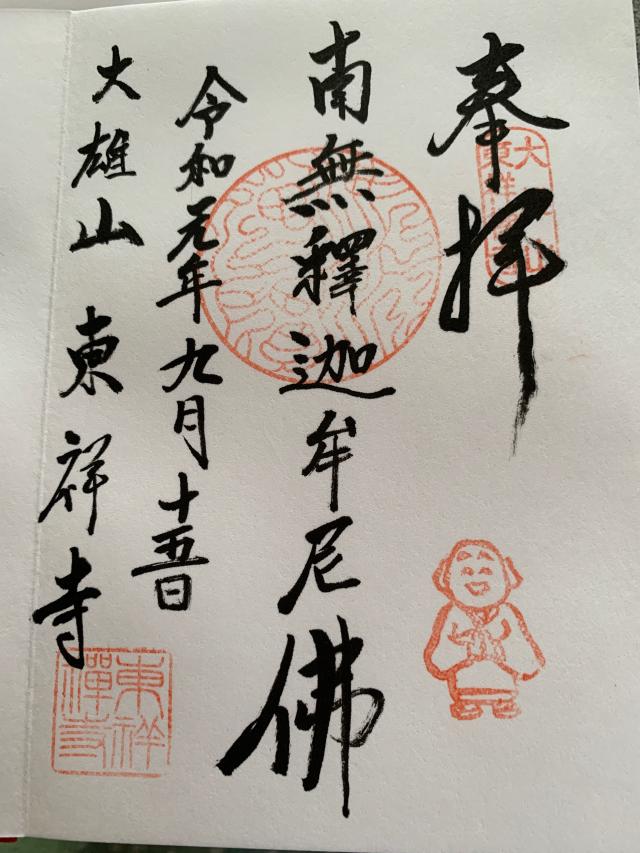 奉拝
南無釋迦牟尼佛
令和元年九月十五日
大雄山 東祥寺
東祥禪寺